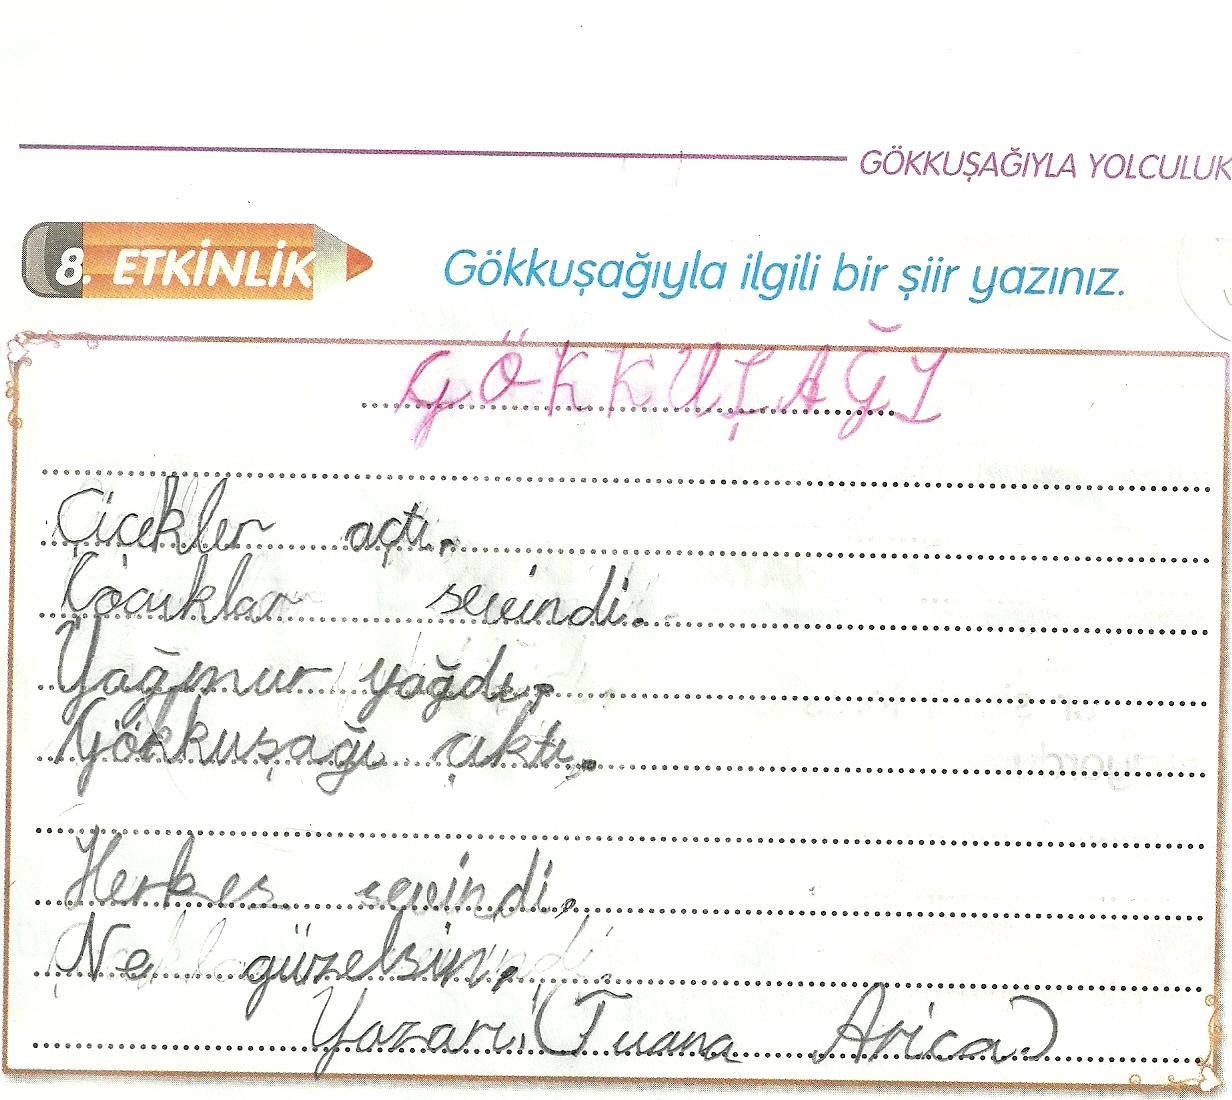 GÖKKUŞAĞIYLA YOLCULUK
8. ETKİNLİK
Gökkuşağıyla ilgili bir şiir yazınız.
GÖKKUŞAĞI
Çiçekler açtı.
Çocuklar sevindi.
Yağmur yağdı,
Gökkuşağı çıktı.
Herkes sevindi,
Ne güzelsin,
Yazarı: (Tuana Arica)